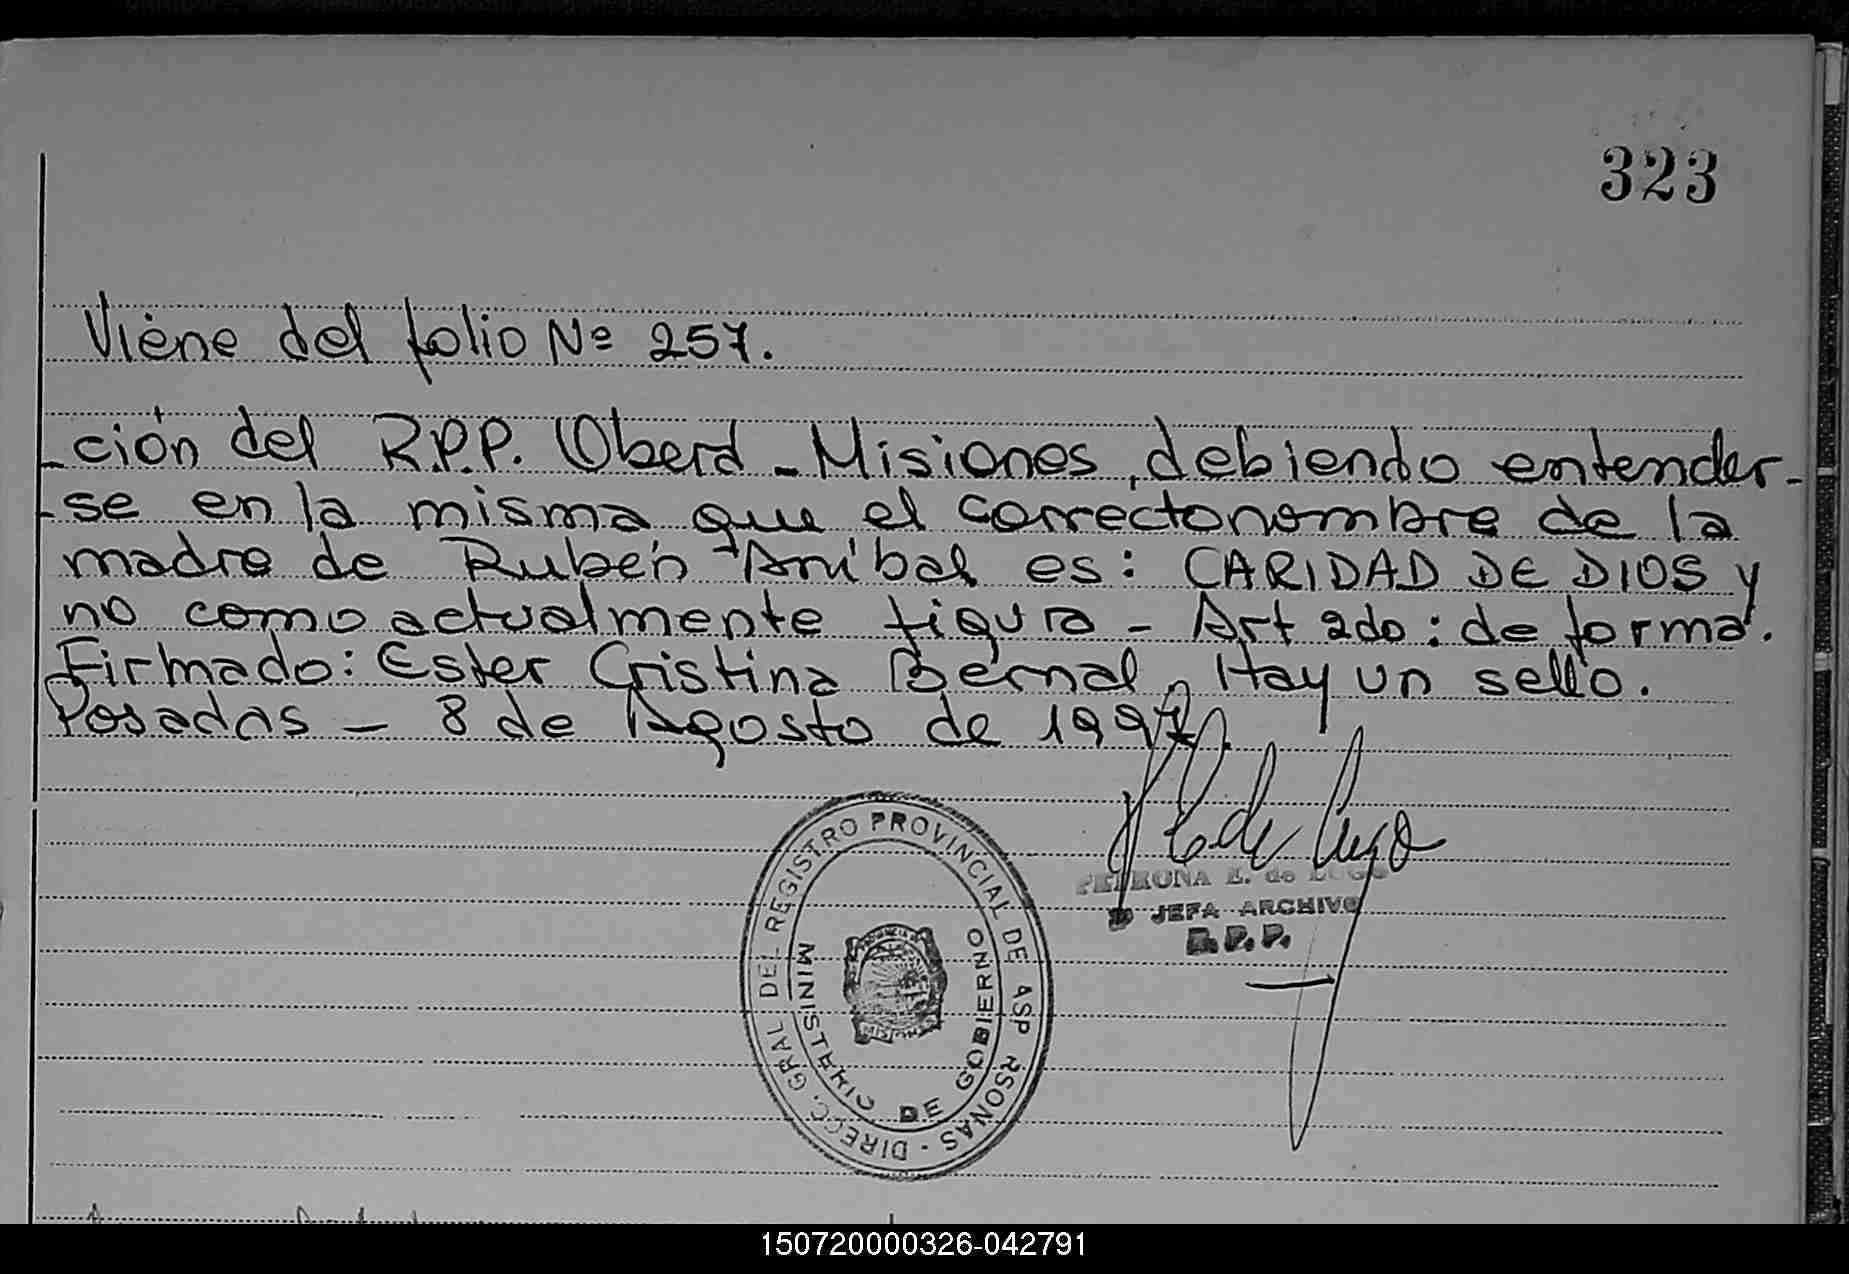 323
Viene del folio Nº 257.
-ción del R.P.P. Oberá - Misiones, debiendo entender-
-se en la misma que el correcto nombre de la
madre de Rubén Aníbal es: CARIDAD DE DIOS y
no como actualmente figura - Art 2do: de forma.
Firmado: Ester Cristina Bernal, Hay un sello.
Posadas - 8 de Agosto de 1997.
PETRONA E. de LUGO
JEFA ARCHIVO
R.P.P.
DIRECC. GRAL DEL REGISTRO PROVINCIAL DE
MINISTERIO DE GOBIERNO
150720000326-042791